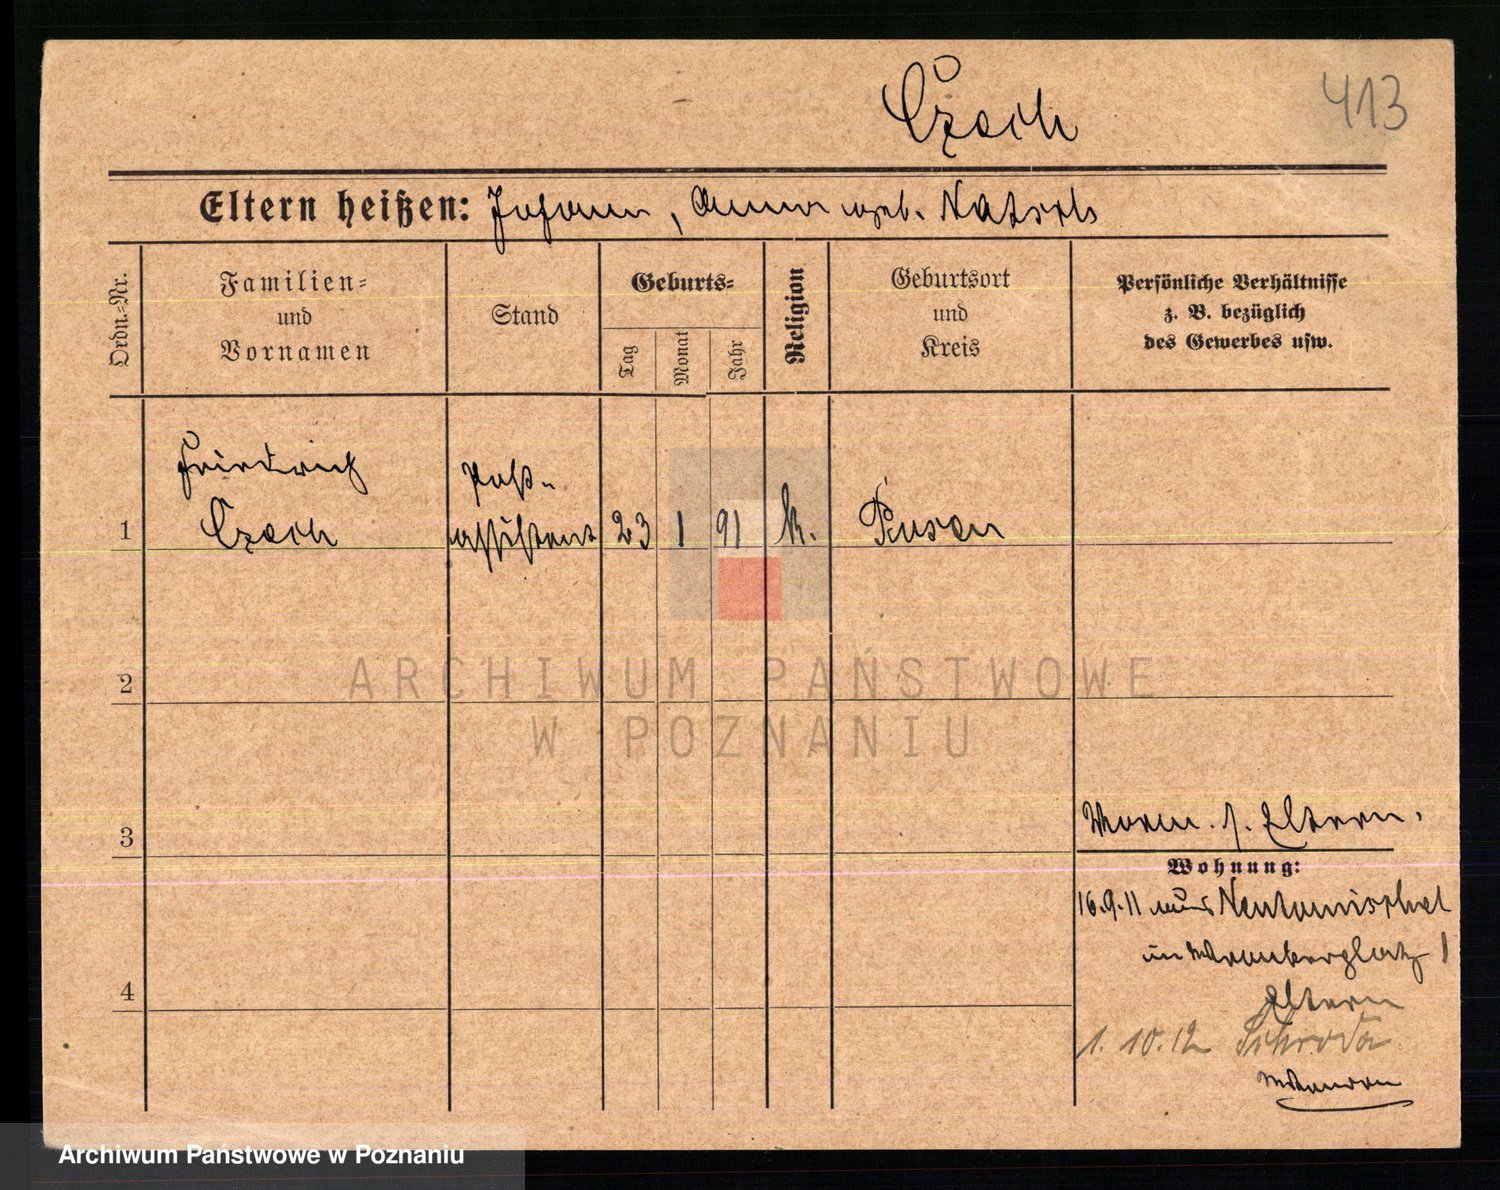 Czech
413
Eltern heißen: Johann, Anna geb.
Ordn.-Nr.
Familien-
und
Vornamen
Stand
Geburts-
Tag
Monat
Jahr
Religion
Geburtsort
und
Kreis
Persönliche Verhältnisse
z. B. bezüglich
des Gewerbes usw.
Friedrich
Czech
Post-
assistent
1
23
1
91
k.
Posen
2
3
4
ARCHIWUM PAŃSTWOWE
W POZNANIU
Vorm. s. Eltern.
Wohnung:
16.9.11 aus Neutomischel
1
Eltern
1.10.12 Schroda
Archiwum Państwowe w Poznaniu